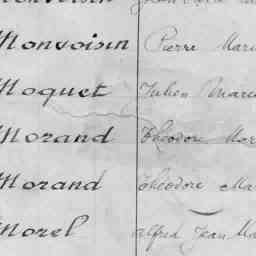 Monvoisin Pierre Mari
Moquet Julien Marie
Morand Théodore Mar
Morand Théodore Ma
Morel Alfred Jean Ma